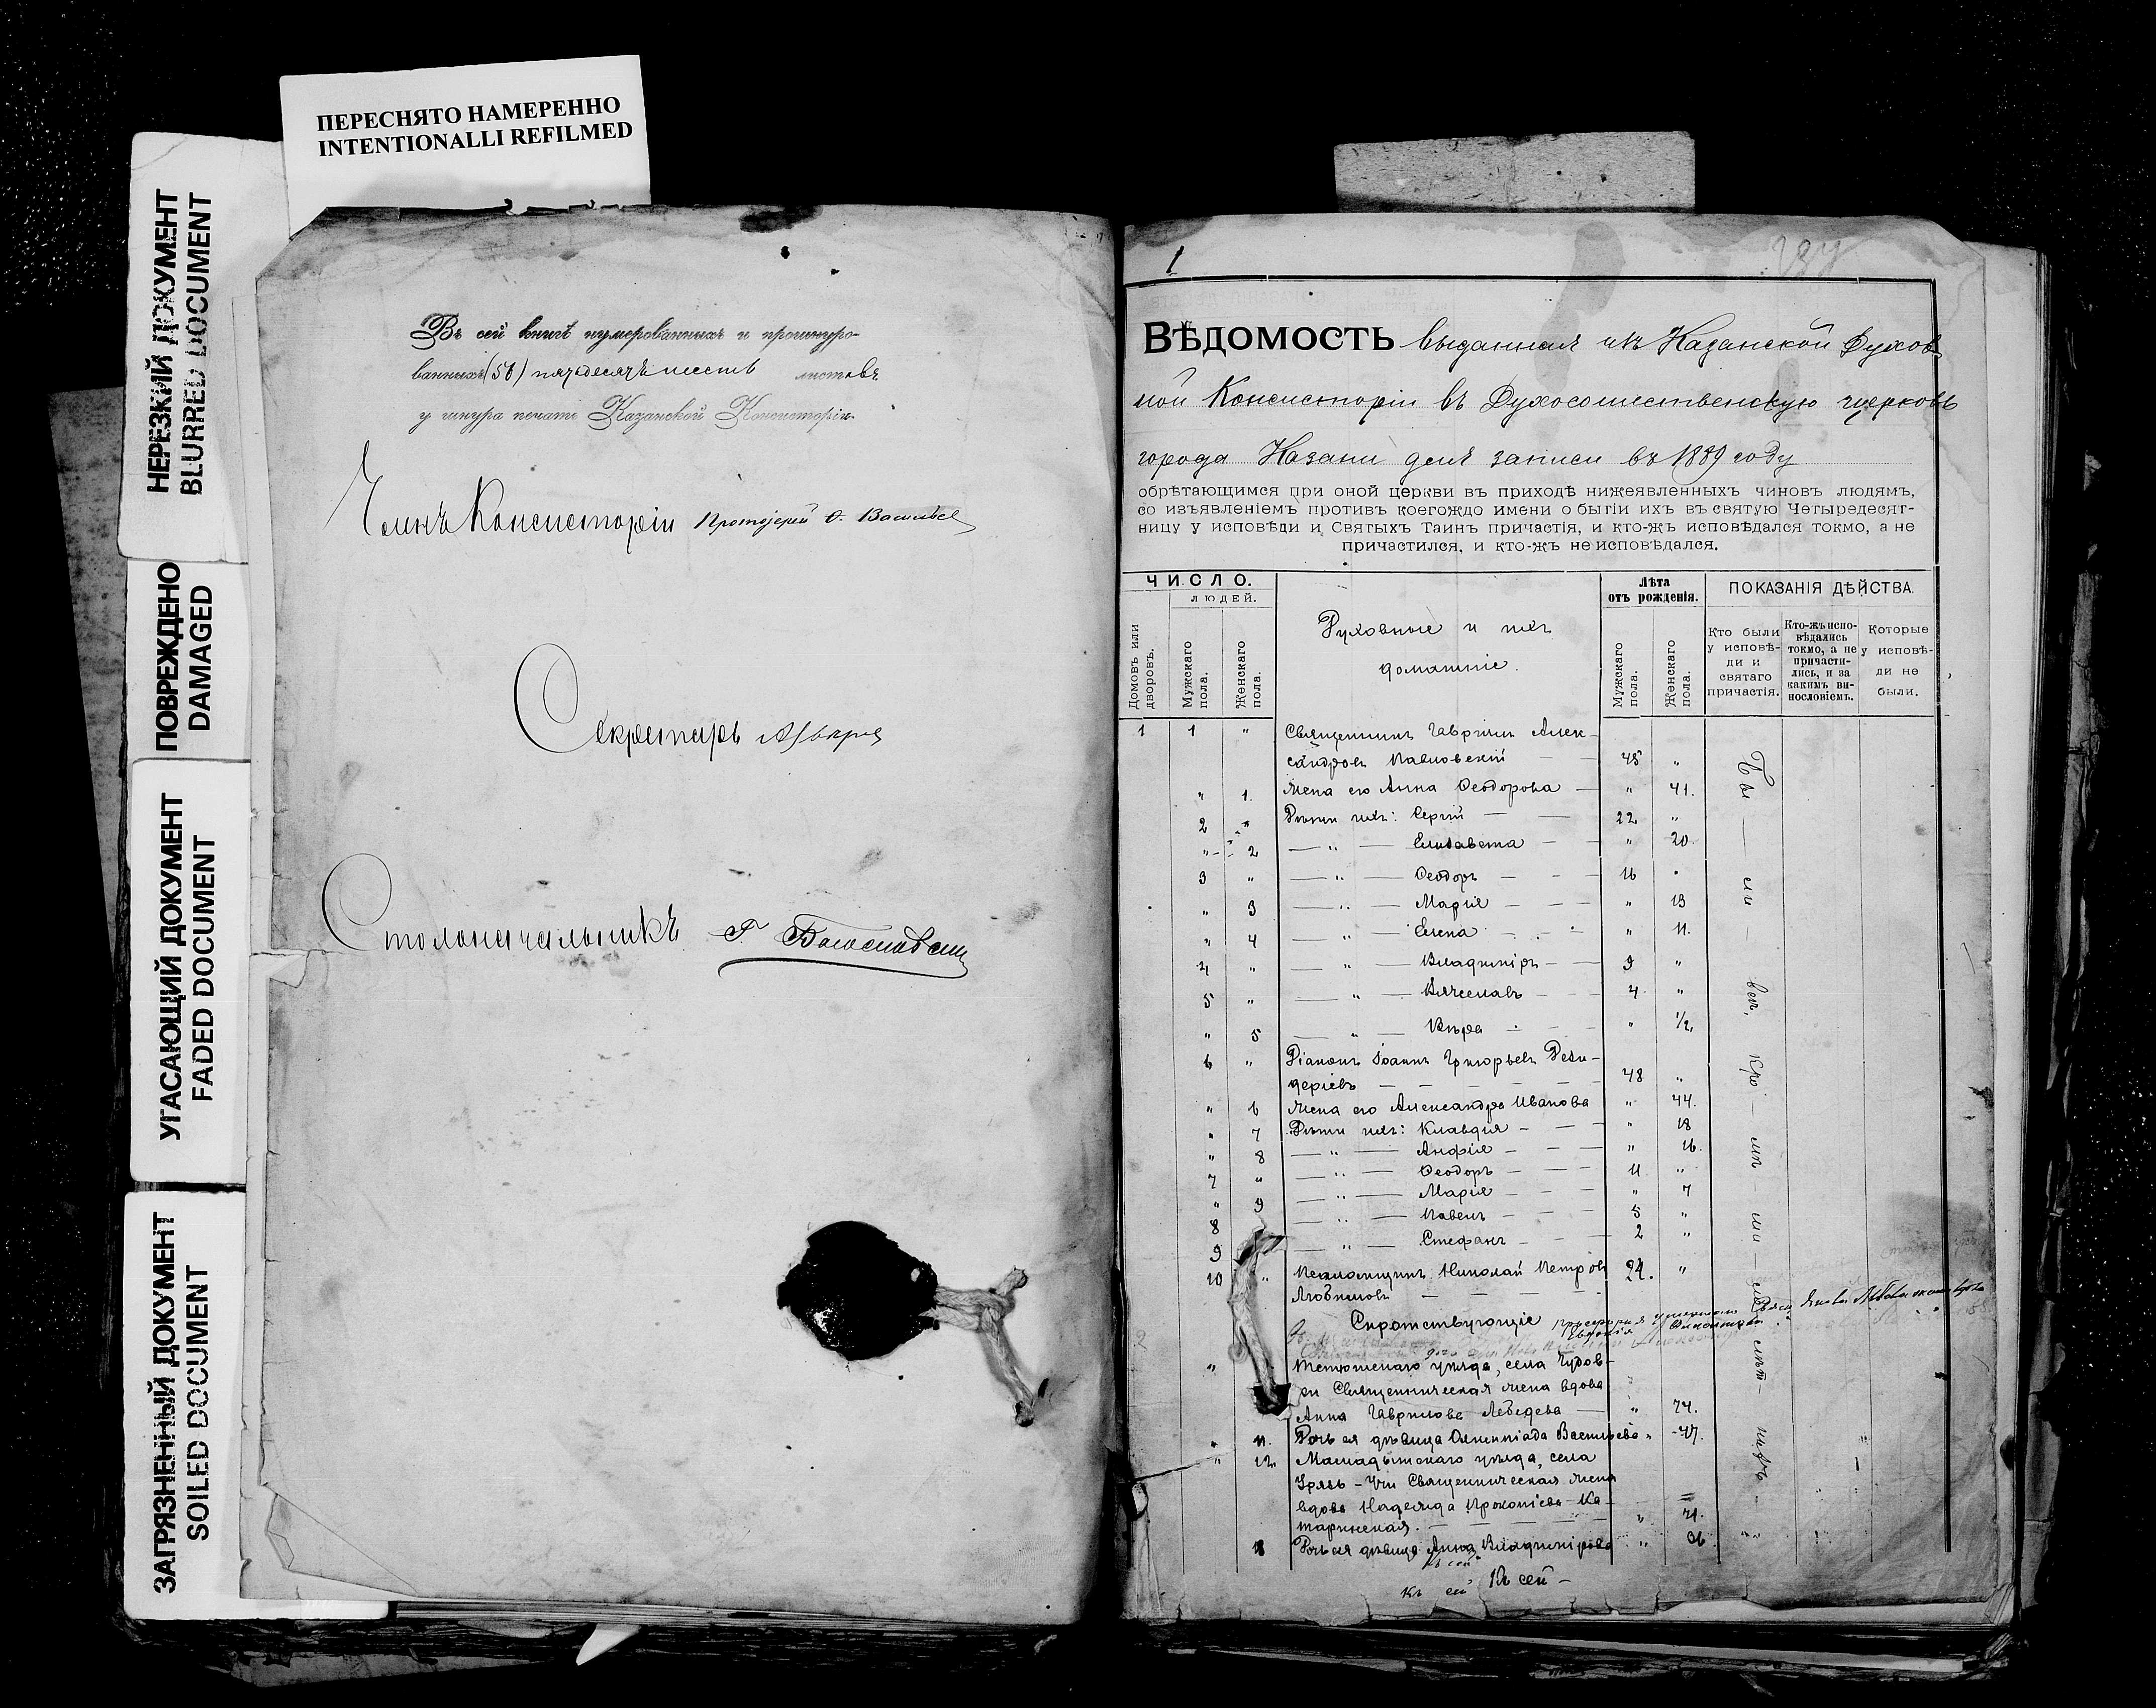 ПЕРЕСНЯТО НАМЕРЕННО
INTENTIONALLI REFILMED
НЕРЕЗКИЙ ДОКУМЕНТ
BLURRED DOCUMENT
ПОВРЕЖДЕНО
DAMAGED
УГАСАЮЩИЙ ДОКУМЕНТ
FADED DOCUMENT
ЗАГРЯЗНЕННЫЙ ДОКУМЕНТ
SOILED DOCUMENT
Въ сей книгѣ нумерованныхъ и прошнуро-
ванныхъ (56) пятьдесятъ шесть листовъ.
у шнура печать Казанской Консисторіи.
Членъ Консисторіи Протоіерей
Секретарь
Столоначальникъ Богословскій
1
ВѢДОМОСТЬ выданная изъ Казанской Духов
ной Консисторіи въ Духосошественскую церковь
города Казани для записи въ 1889 году
обрѣтающимся при оной церкви въ приходѣ нижеявленныхъ чиновъ людямъ,
со изъявленіемъ противъ коегождо имени о бытіи ихъ въ святую Четыредесят-
ницу у исповѣди и Святыхъ Таинъ причастія, и кто-жъ исповѣдался токмо, а не
причастился, и кто-жъ не исповѣдался.
ЧИСЛО.
людей.
Домовъ или дворовъ.
Мужскаго пола.
Женскаго пола.
Духовные и ихъ
домашніе.
Лѣта
отъ рожденія.
Мужскаго пола.
Женскаго пола.
ПОКАЗАНІЯ ДѢЙСТВА.
Кто были у исповѣ-ди и святаго причастія.
Кто-жъ испо-вѣдались токмо, а не причасти-лись, и за какимъ ви-нословіемъ.
Которые у исповѣ-ди не были.
1 1 " Священникъ Гавріилъ Алек-
сандровъ Павловскій 45 "
" 1. Жена его Анна Ѳеодорова " 41.
2 " Дѣти ихъ: Сергій 22 "
" 2 Елизавета " 20.
3 " Ѳеодоръ 16
" 3 Марія " 13
" 4 Елена " 11.
4 " Владиміръ 9 "
5 " Вячеславъ 4 "
" 5 Вѣра " 1/2.
6 " Діаконъ Іоаннъ Григорьевъ Дези-
деріевъ 48 "
" 6 Жена его Александра Иванова " 44.
" 7 Дѣти ихъ: Клавдія " 18
" 8 Анфія " 16.
7 " Ѳеодоръ 11 "
" 9 Марія " 7
8 Павелъ 5 "
9 Стефанъ 2 "
10 " Псаломщикъ Николай Петровъ 24. "
Любимовъ
Сиротствующіе
" Тетюшскаго уѣзда, села Чудов-
ки Священническая жена вдова
Анна Гаврилова Лебедева " 74.
" 11. Дочь ея дѣвица Олимпіада Васильева " 47.
" 12. Мамадышскаго уѣзда, села
Урясь-Учи Священническая жена
вдова Надежда Прокопіева Ка-
таринская. " 71.
Дочь ея дѣвица Анна Владимірова " 36
Къ сей